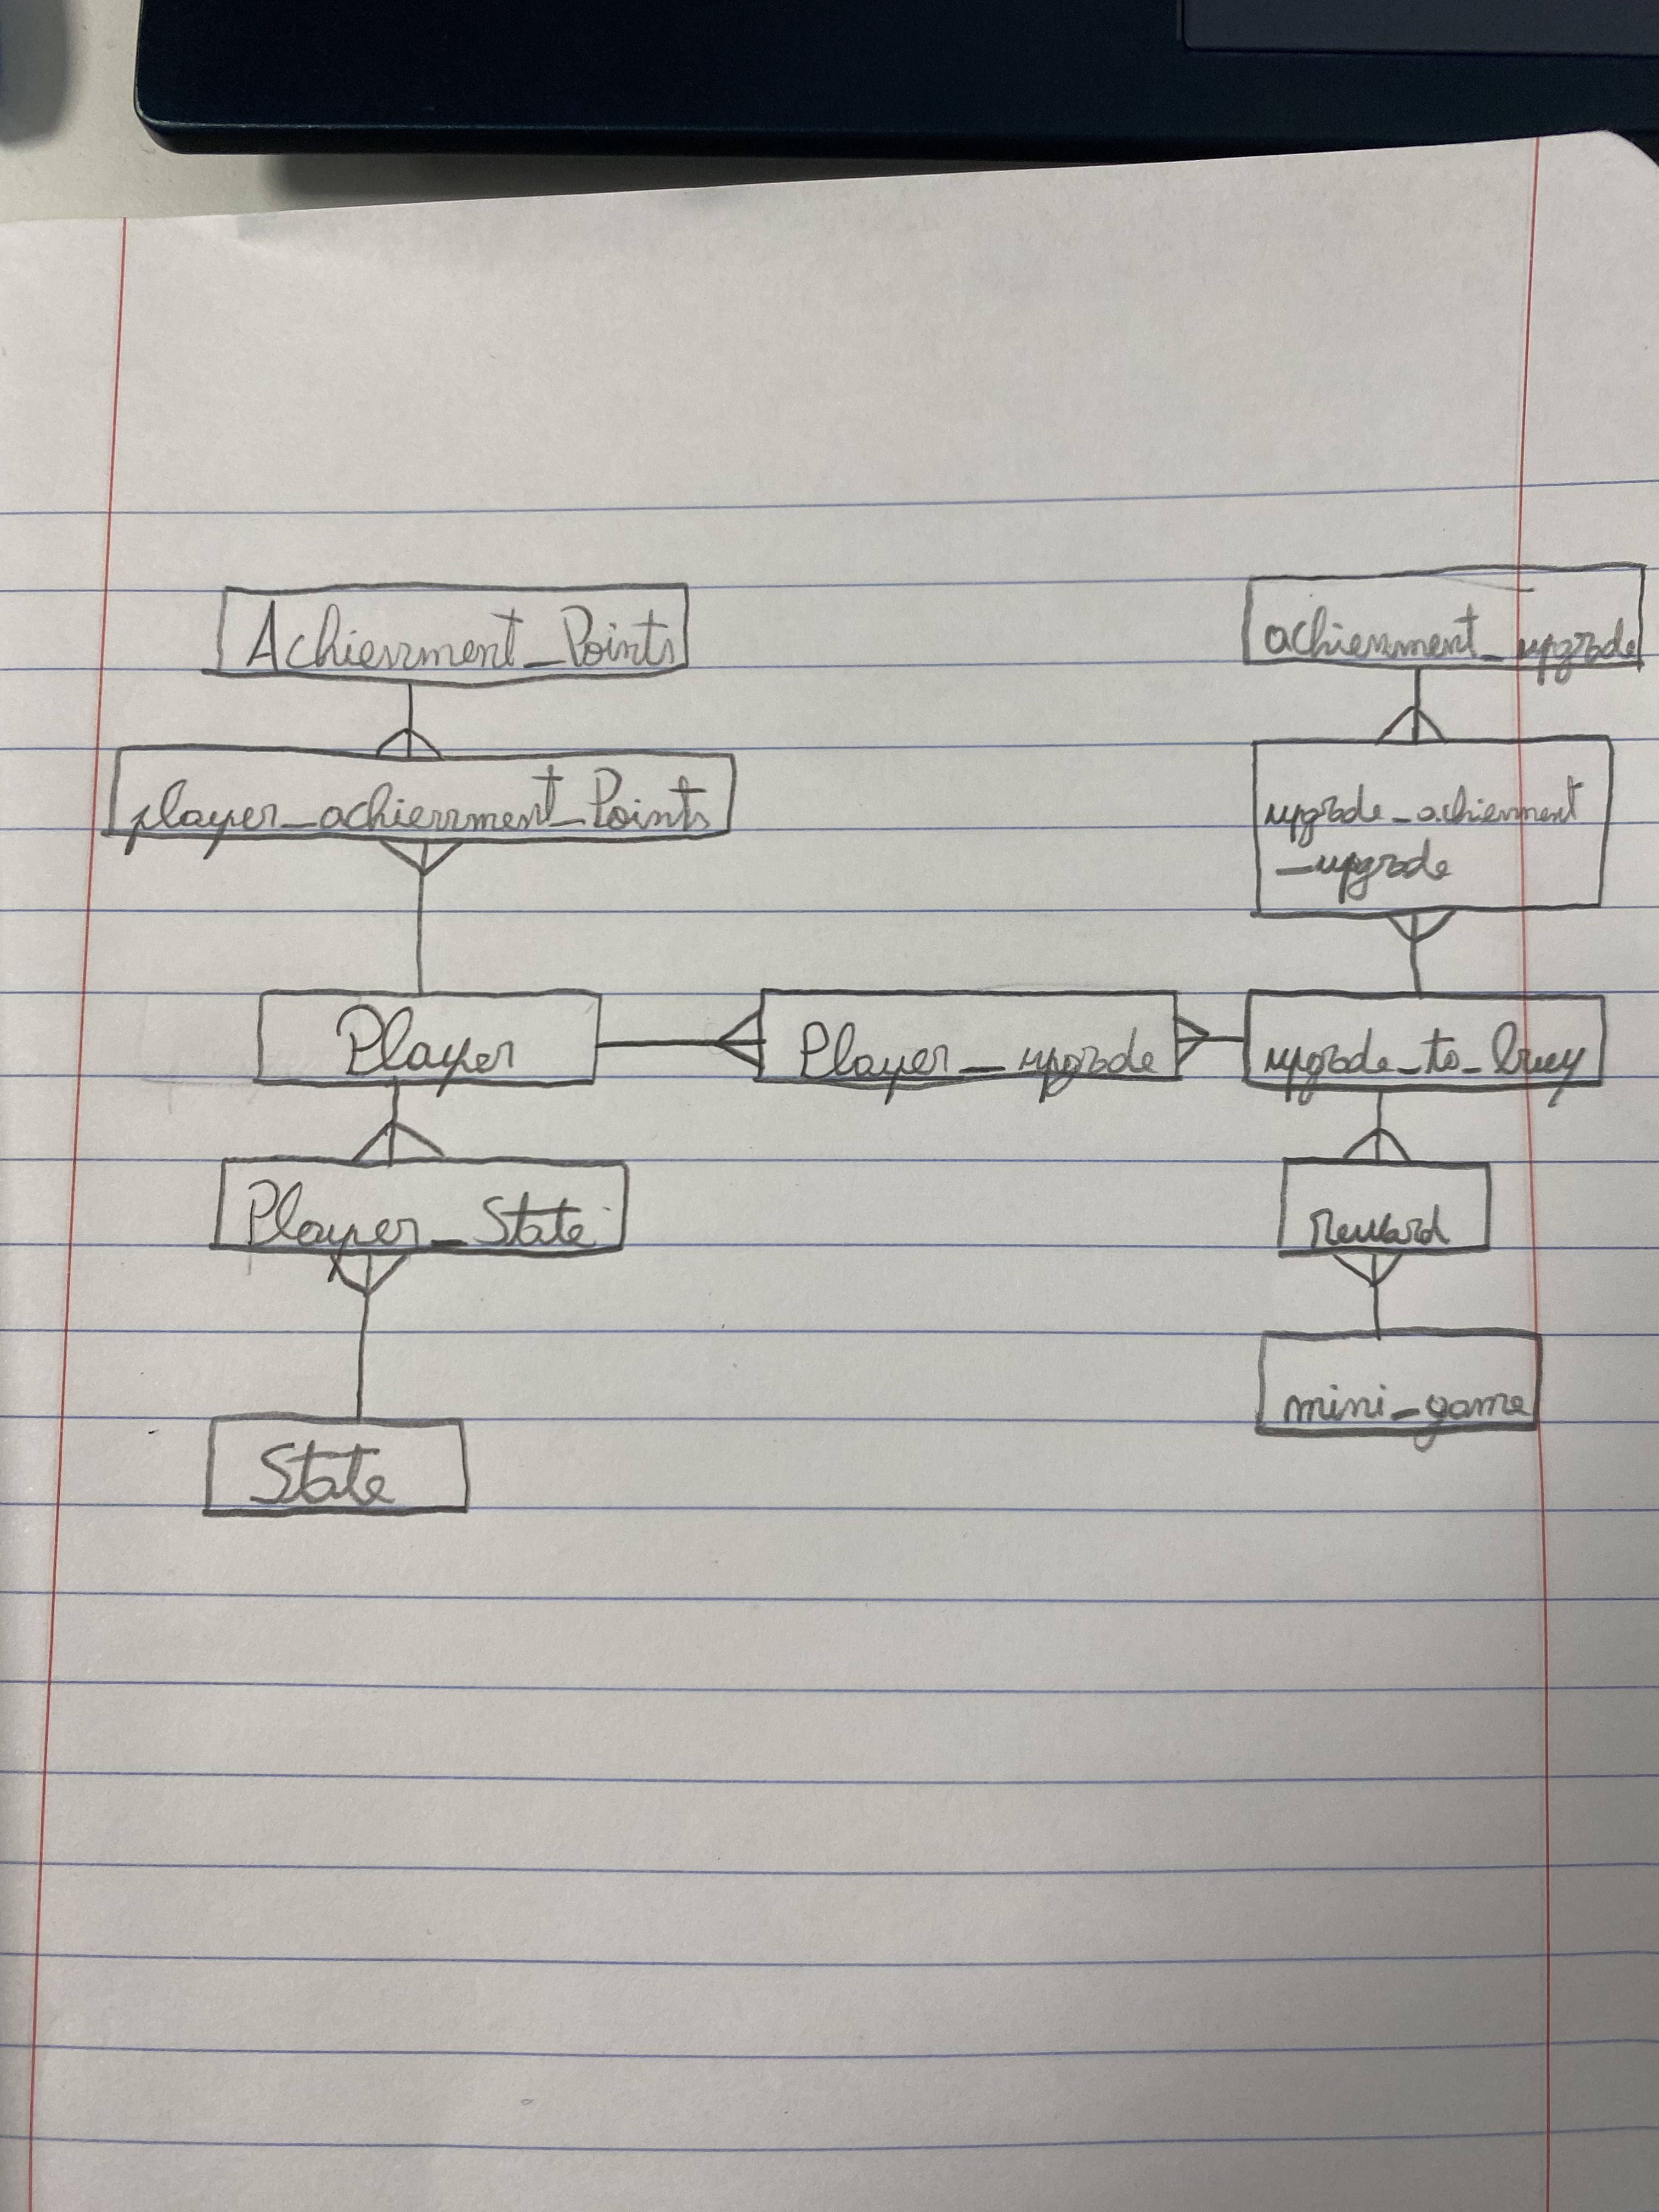 Achievment_Points
achievment_upgrade
player_achievment_Points
upgrade_achievment
_upgrade
Player
Player_upgrade
upgrade_to_buy
Player_State
Reward
mini_game
State